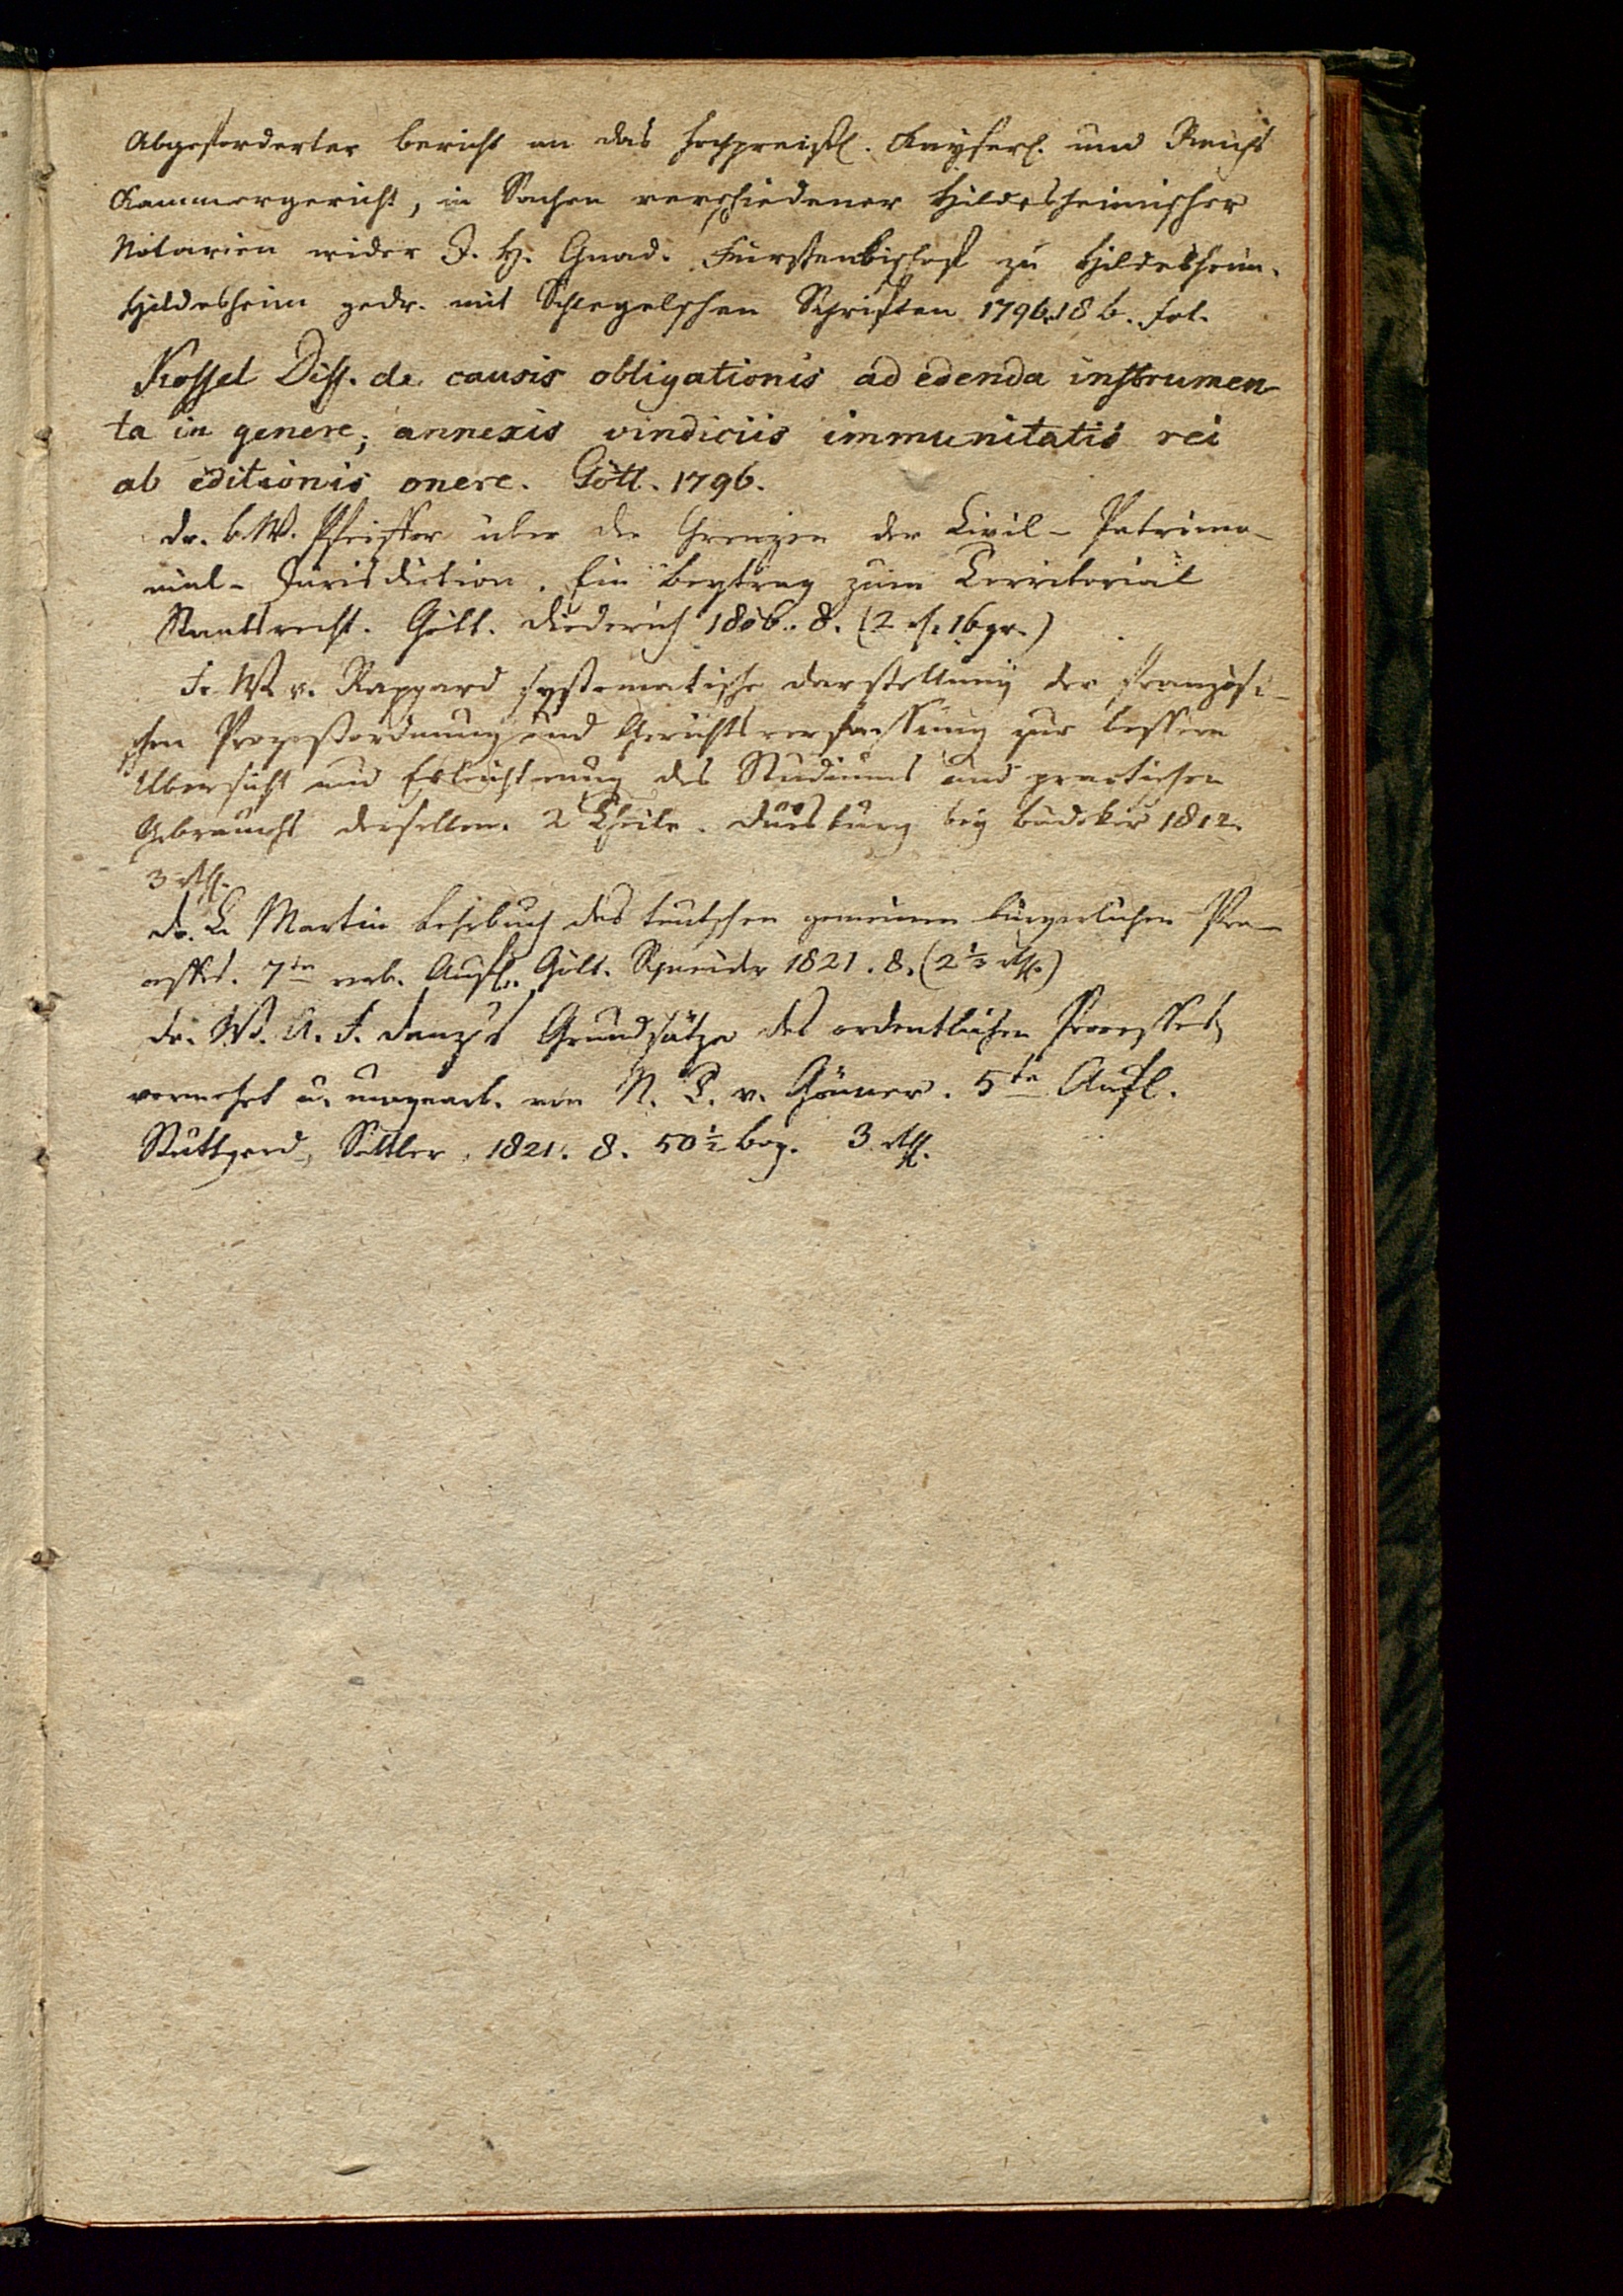 Abgeforderter Bericht an das Hochpreißl. Kayserl. und Reichs
Kammergericht, in Sachen verschiedener Hildesheimischer
Notarien wider J. H. Gnad. Fürstenbischof zu Hildesheim.
Hildesheim gedr. mit Schlegelschen Schriften 1796. 18 b. fol.
Kossel Diss. de causis obligationis ad edenda instrumen-
ta in genere; annexis vindiciis immunitatis rei
ab editionis onere. Gött. 1796.
Dr. B. W. Pfeiffer über die Grenzen der Civil-Patrimo-
nial-Jurisdiction. Ein Beytrag zum Territorial
Staatsrecht. Gött. Diederich 1806. 8. (2 rh. 16 gr.)
Fr. W. v. Rappard systematische Darstellung der französi-
schen Prozeßordnung und Gerichtsverfassung zur bessern
Übersicht und Erleichterung des Studiums und practischen
Gebrauchs derselben. 2 Theile. Duisburg bey Bädeker 1812.
3 rthl.
Dr. C. Martin Lehrbuch des teutschen gemeinen bürgerlichen Pro-
cesses. 7te verb. Aufl. Gött. Schneider 1821. 8. (2 1/3 rthl.)
Dr. W. A. F. Danz's Grundsätze des ordentlichen Processes,
vermehrt u. umgearb. von N. T. v. Gönner. 5te Aufl.
Stuttgard, Sattler, 1821. 8. 50 1/2 Bog. 3 rthl.